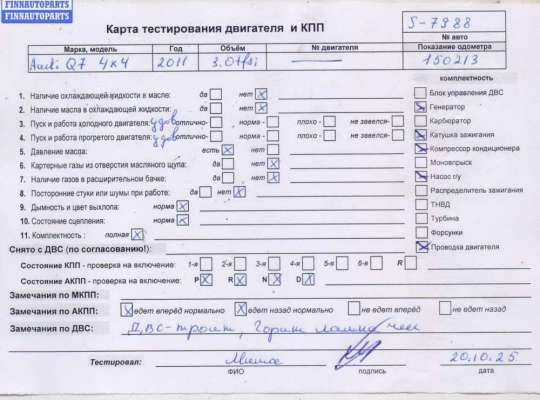 FINNAUTOPARTS
FINNAUTOPARTS
Карта тестирования двигателя и КПП
S-7988
№ авто
Марка, модель Год Объём № двигателя Показание одометра
Audi Q7 4x4 2011 3.0tfsi — 150213
комплектность
1. Наличие охлаждающей жидкости в масле: да нет
2. Наличие масла в охлаждающей жидкости: да нет
3. Пуск и работа холодного двигателя: удов отлично- норма - плохо - не завелся-
4. Пуск и работа прогретого двигателя: удов отлично- норма - плохо - не завелся-
5. Давление масла: есть нет
6. Картерные газы из отверстия масляного щупа: да нет
7. Наличие газов в расширительном бачке: да нет
8. Посторонние стуки или шумы при работе: да нет
9. Дымность и цвет выхлопа: норма
10. Состояние сцепления: норма
11. Комплектность : полная
Блок управления ДВС
Генератор
Карбератор
Катушка зажигания
Компрессор кондиционера
Моновпрыск
Насос г/у
Распределитель зажигания
ТНВД
Турбина
Форсунки
Проводка двигателя
Снято с ДВС (по согласованию!):
Состояние КПП - проверка на включение: 1-я 2-я 3-я 4-я 5-я 6-я R
Состояние АКПП - проверка на включение: P R N D
Замечания по МКПП:
Замечания по АКПП: едет вперёд нормально едет назад нормально не едет вперёд не едет назад
Замечания по ДВС: ДВС-троит, Горит лампа чек
Тестировал: 20.10.25
ФИО подпись дата